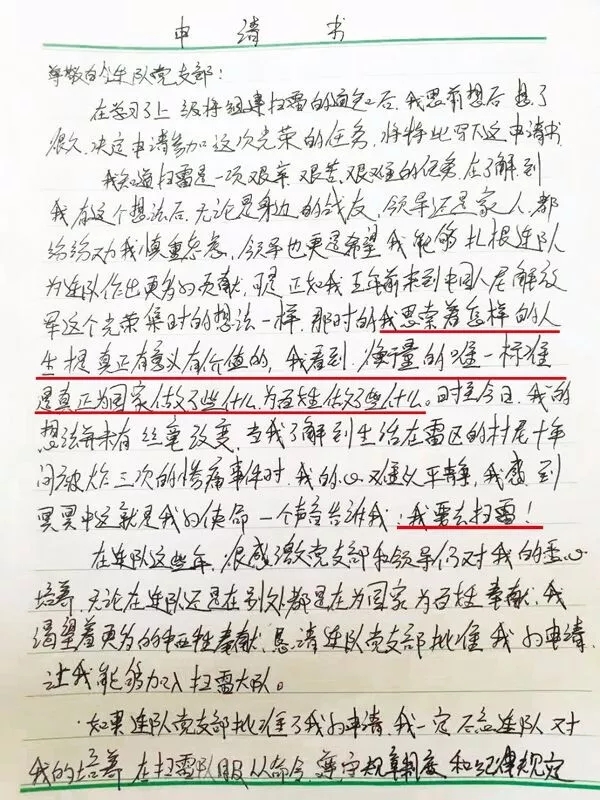 申请书
尊敬的连队党支部：
在学习了上级将组建扫雷的通知后，我思前想后，想了
很久，决定申请参加这次光荣的任务，特将此写下这申请书
我知道扫雷是一项艰辛、艰苦、艰难的任务，在了解到
我有这个想法后，无论是身边的战友，领导还是家人，都
纷纷劝我慎重考虑，领导也更是希望我能够扎根连队
为连队作出更多的贡献，可是正如我五年前来到中国人民解放
军这个光荣集体时的想法一样，那时的我思索着怎样的人
生是真正有意义有价值的，我看到，衡量的唯一标准
是真正为国家做了些什么，为百姓做了些什么。时至今日，我的
想法并未有丝毫改变，当我了解到生活在雷区的村民十年
间被炸三次的惨痛事件时，我的心难以平静，我感到
冥冥中这就是我的使命，一个声音告诉我：我要去扫雷！
在连队这些年，很感激党支部和领导们对我的悉心
培养，无论在连队还是在别处都是在为国家为百姓奉献，我
渴望着更多的牺牲奉献，恳请连队党支部批准我的申请，
让我能够加入扫雷大队。
如果连队党支部批准了我的申请，我一定不忘连队对
我的培养，在扫雷队服从命令，遵守规章制度和纪律规定